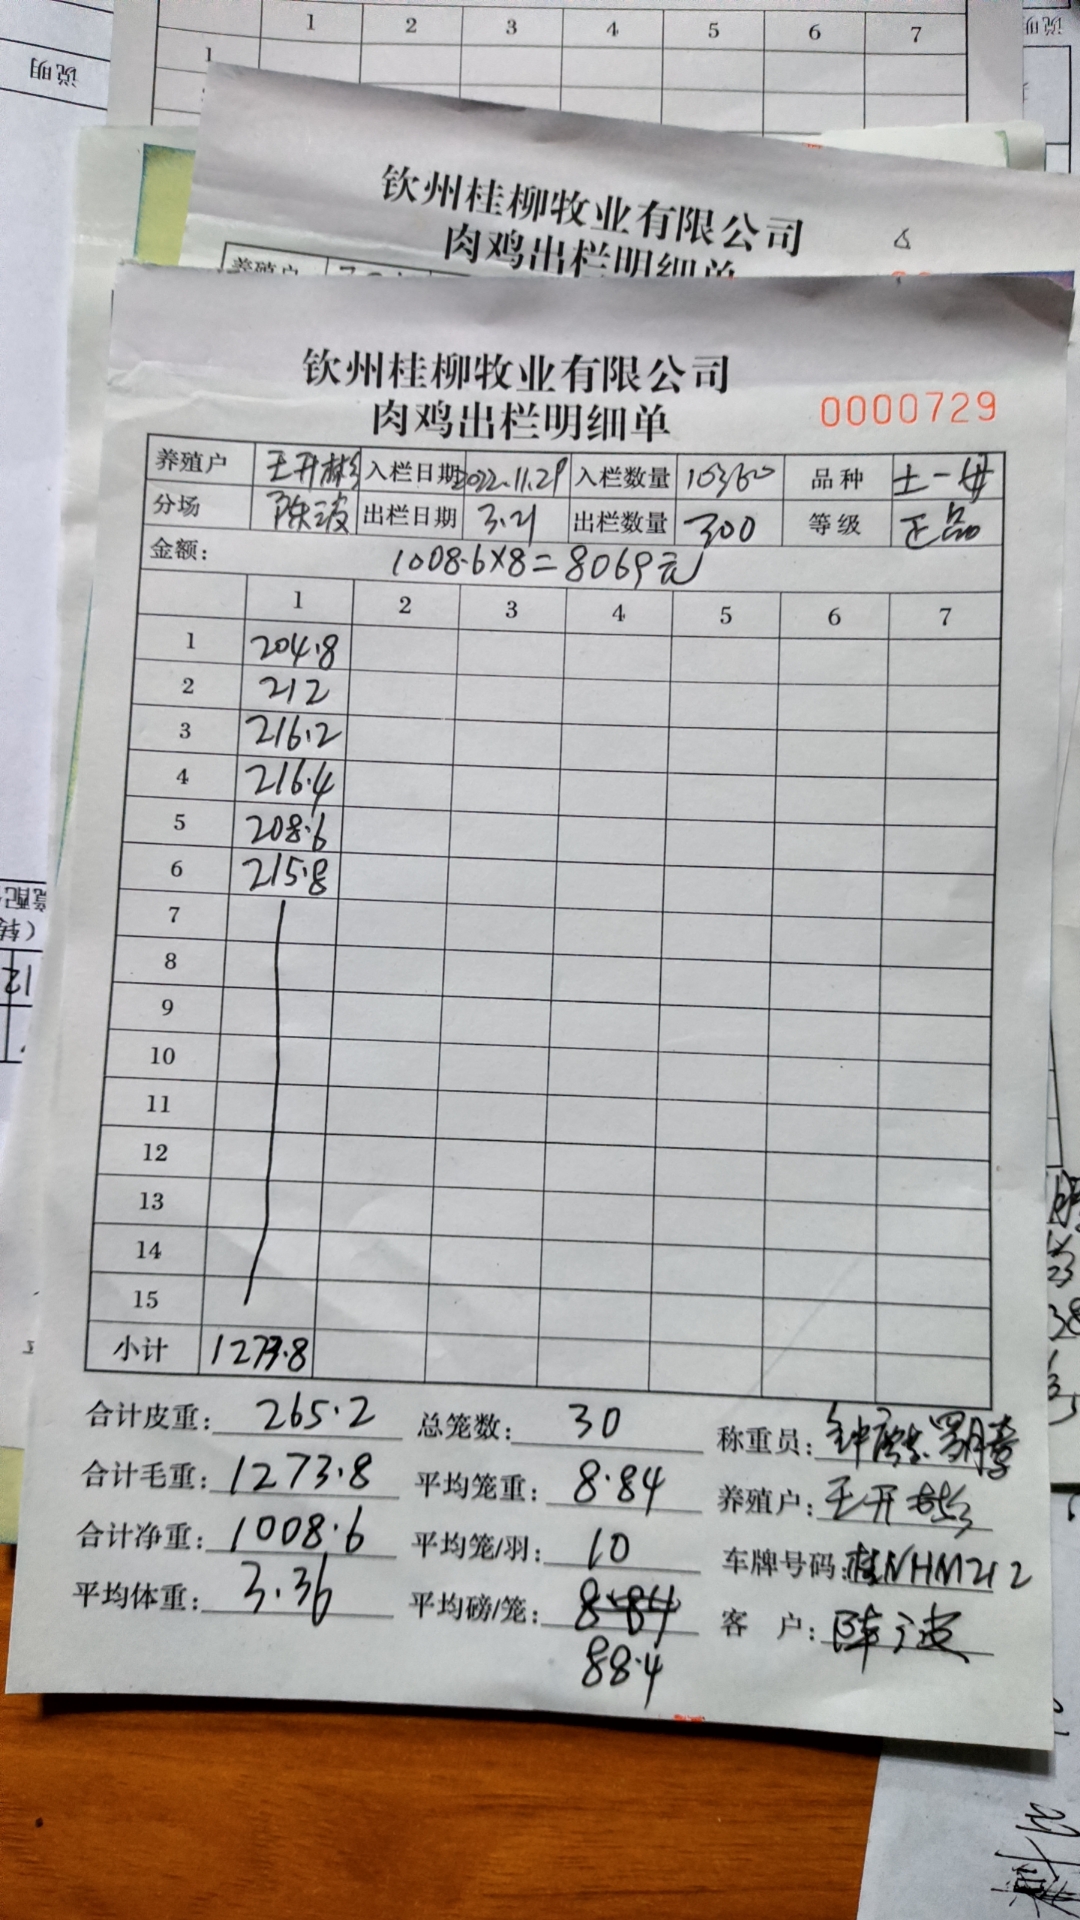 1 2 3 4 5 6 7
1
说明
钦州桂柳牧业有限公司
肉鸡出栏明细单
养殖户
钦州桂柳牧业有限公司
肉鸡出栏明细单
0000729
养殖户 王开彬 入栏日期 2022.11.29 入栏数量 10360 品种 土一母
分场 陈波 出栏日期 3.21 出栏数量 300 等级 正品
金额: 1008.6×8=8069元
1 2 3 4 5 6 7
1 204.8
2 212
3 216.2
4 216.4
5 208.6
6 215.8
7
8
9
10
11
12
13
14
15
小计 1273.8
合计皮重: 265.2 总笼数: 30 称重员:
合计毛重: 1273.8 平均笼重: 8.84 养殖户: 王开彬
合计净重: 1008.6 平均笼/羽: 10 车牌号码: 桂NHM212
平均体重: 3.36 平均磅/笼: 8.84 客 户: 陈波
88.4